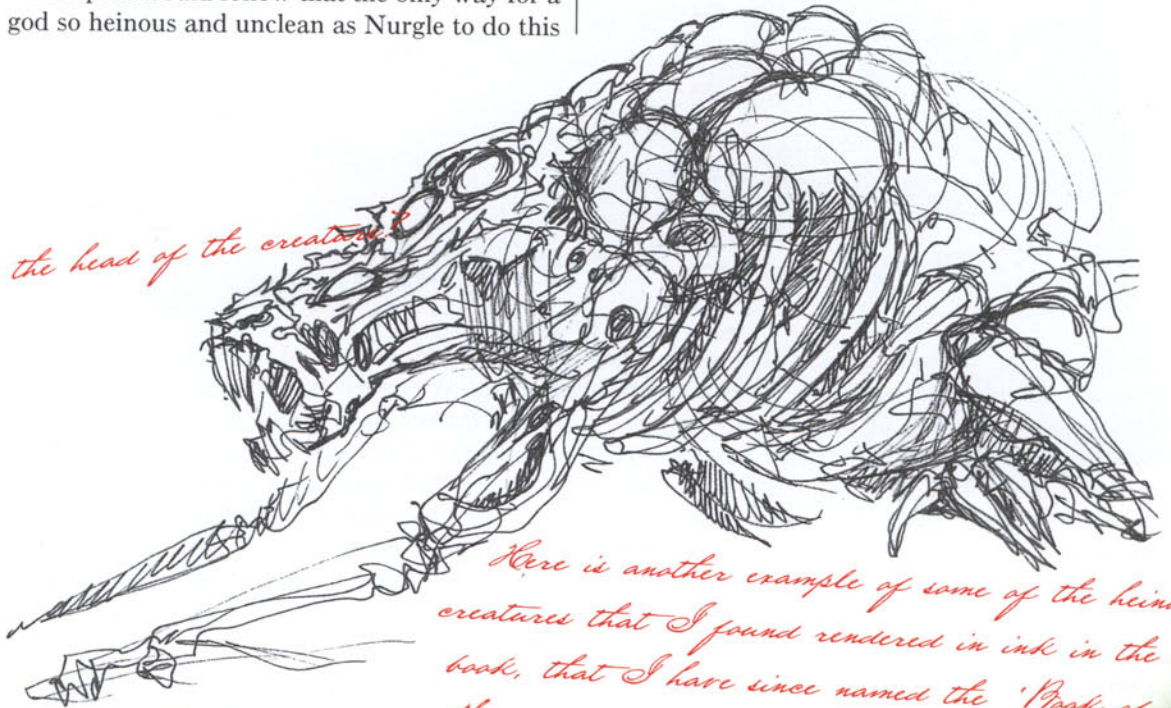 god so heinous and unclean as Nurgle to do this
the head of the creature?
Here is another example of some of the hein
creatures that I found rendered in ink in the
book, that I have since named the 'Book of